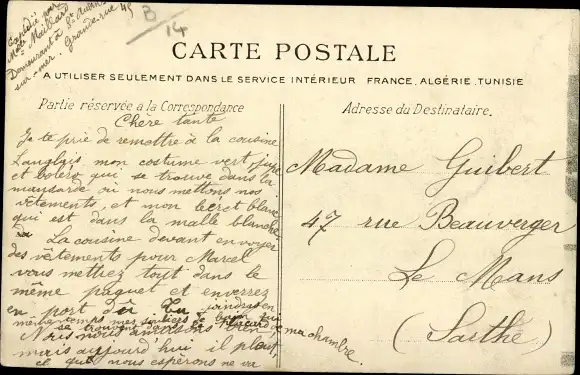 Expédié par
Mme Meillard
Demeurant à St Aubin
sur-mer. Grande-rue 45
B/14
CARTE POSTALE
A UTILISER SEULEMENT DANS LE SERVICE INTÉRIEUR FRANCE, ALGÉRIE, TUNISIE
Partie réservée à la Correspondance
Chère tante
Je te prie de remettre à la cousine
Langlois mon costume vert jupe
et boléro qui se trouve dans la
maysarde où nous mettons nos
vêtements, et mon béret blanc
qui est dans la malle blanche
La cousine devant envoyer
des vêtements pour Marcel
vous mettrez tout dans le
même paquet et enverrez
en port dû Tu windras en
même temps mes de bain qui
se trouvent placard de ma chambre.
Nous nous amusons bien
mais aujourd'hui il pleut,
ce que nous espérons ne va
Adresse du Destinataire.
Madame Guibert
47 rue Beauverger
Le Mans
(Sarthe)